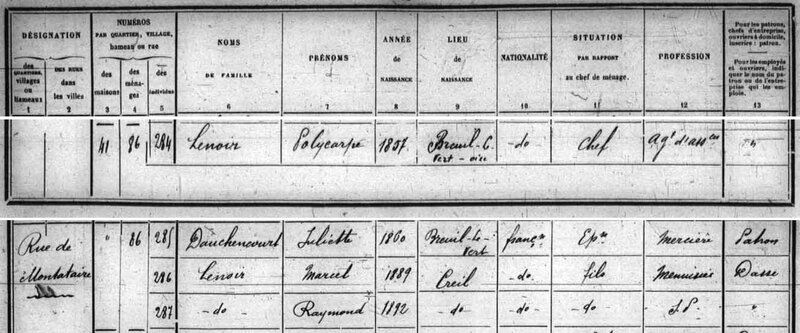 DÉSIGNATION
des QUARTIERS, villages ou HAMEAUX 1
DES RUES dans les villes 2
NUMÉROS PAR QUARTIER, VILLAGE, hameau ou rue
des maisons 3
des ménages 4
des individus 5
NOMS DE FAMILLE 6
PRÉNOMS 7
ANNÉE DE NAISSANCE 8
LIEU DE NAISSANCE 9
NATIONALITÉ 10
SITUATION PAR RAPPORT au chef de ménage. 11
PROFESSION 12
Pour les patrons, chefs d'entreprise, ouvriers à domicile, inscrire : patron.
Pour les employés et ouvriers, indiquer le nom du patron ou de l'entreprise qui les emploie. 13
41 86 284 Lenoir Polycarpe 1857 Breuil-le-Vert - oise - do - chef agt d'assces
Rue de Montataire
" 86 285 Dauchencourt Juliette 1860 Breuil-le-Vert françse Epse Mercière Patron
286 Lenoir Marcel 1889 Creil - do - fils Menuisier Dasse
287 - do - Raymond 1892 - do - - do - - do - S.P. "